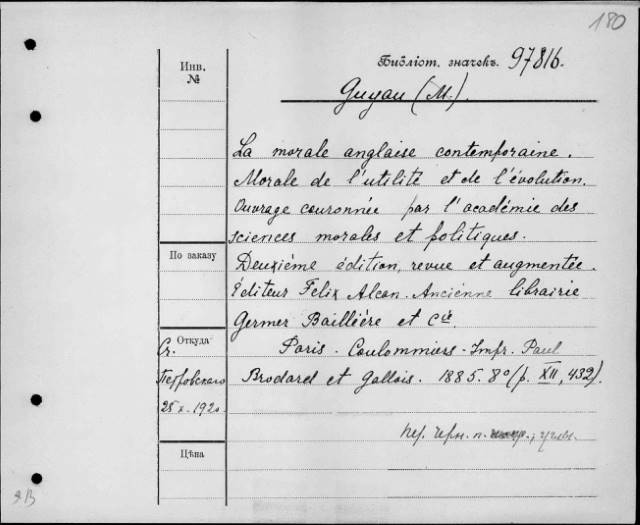 180
Инв. №
Библіот. значекъ. 97816.
Guyau (M.).
La morale anglaise contemporaine.
Morale de l'utilité et de l'évolution.
Ouvrage couronnée par l'académie des
sciences morales et politiques.
По заказу
Deuxiéme édition, revue et augmentée.
éditeur Felix Alcan. Anciénne librairie
Germer Baillière et Cie.
Откуда
Ст. Петровскаго
28 x. 1920
Paris - Coulommiers - Impr. Paul
Brodard et Gallois. 1885. 8º (p. XII, 432).
пер. черн. п.
Цѣна